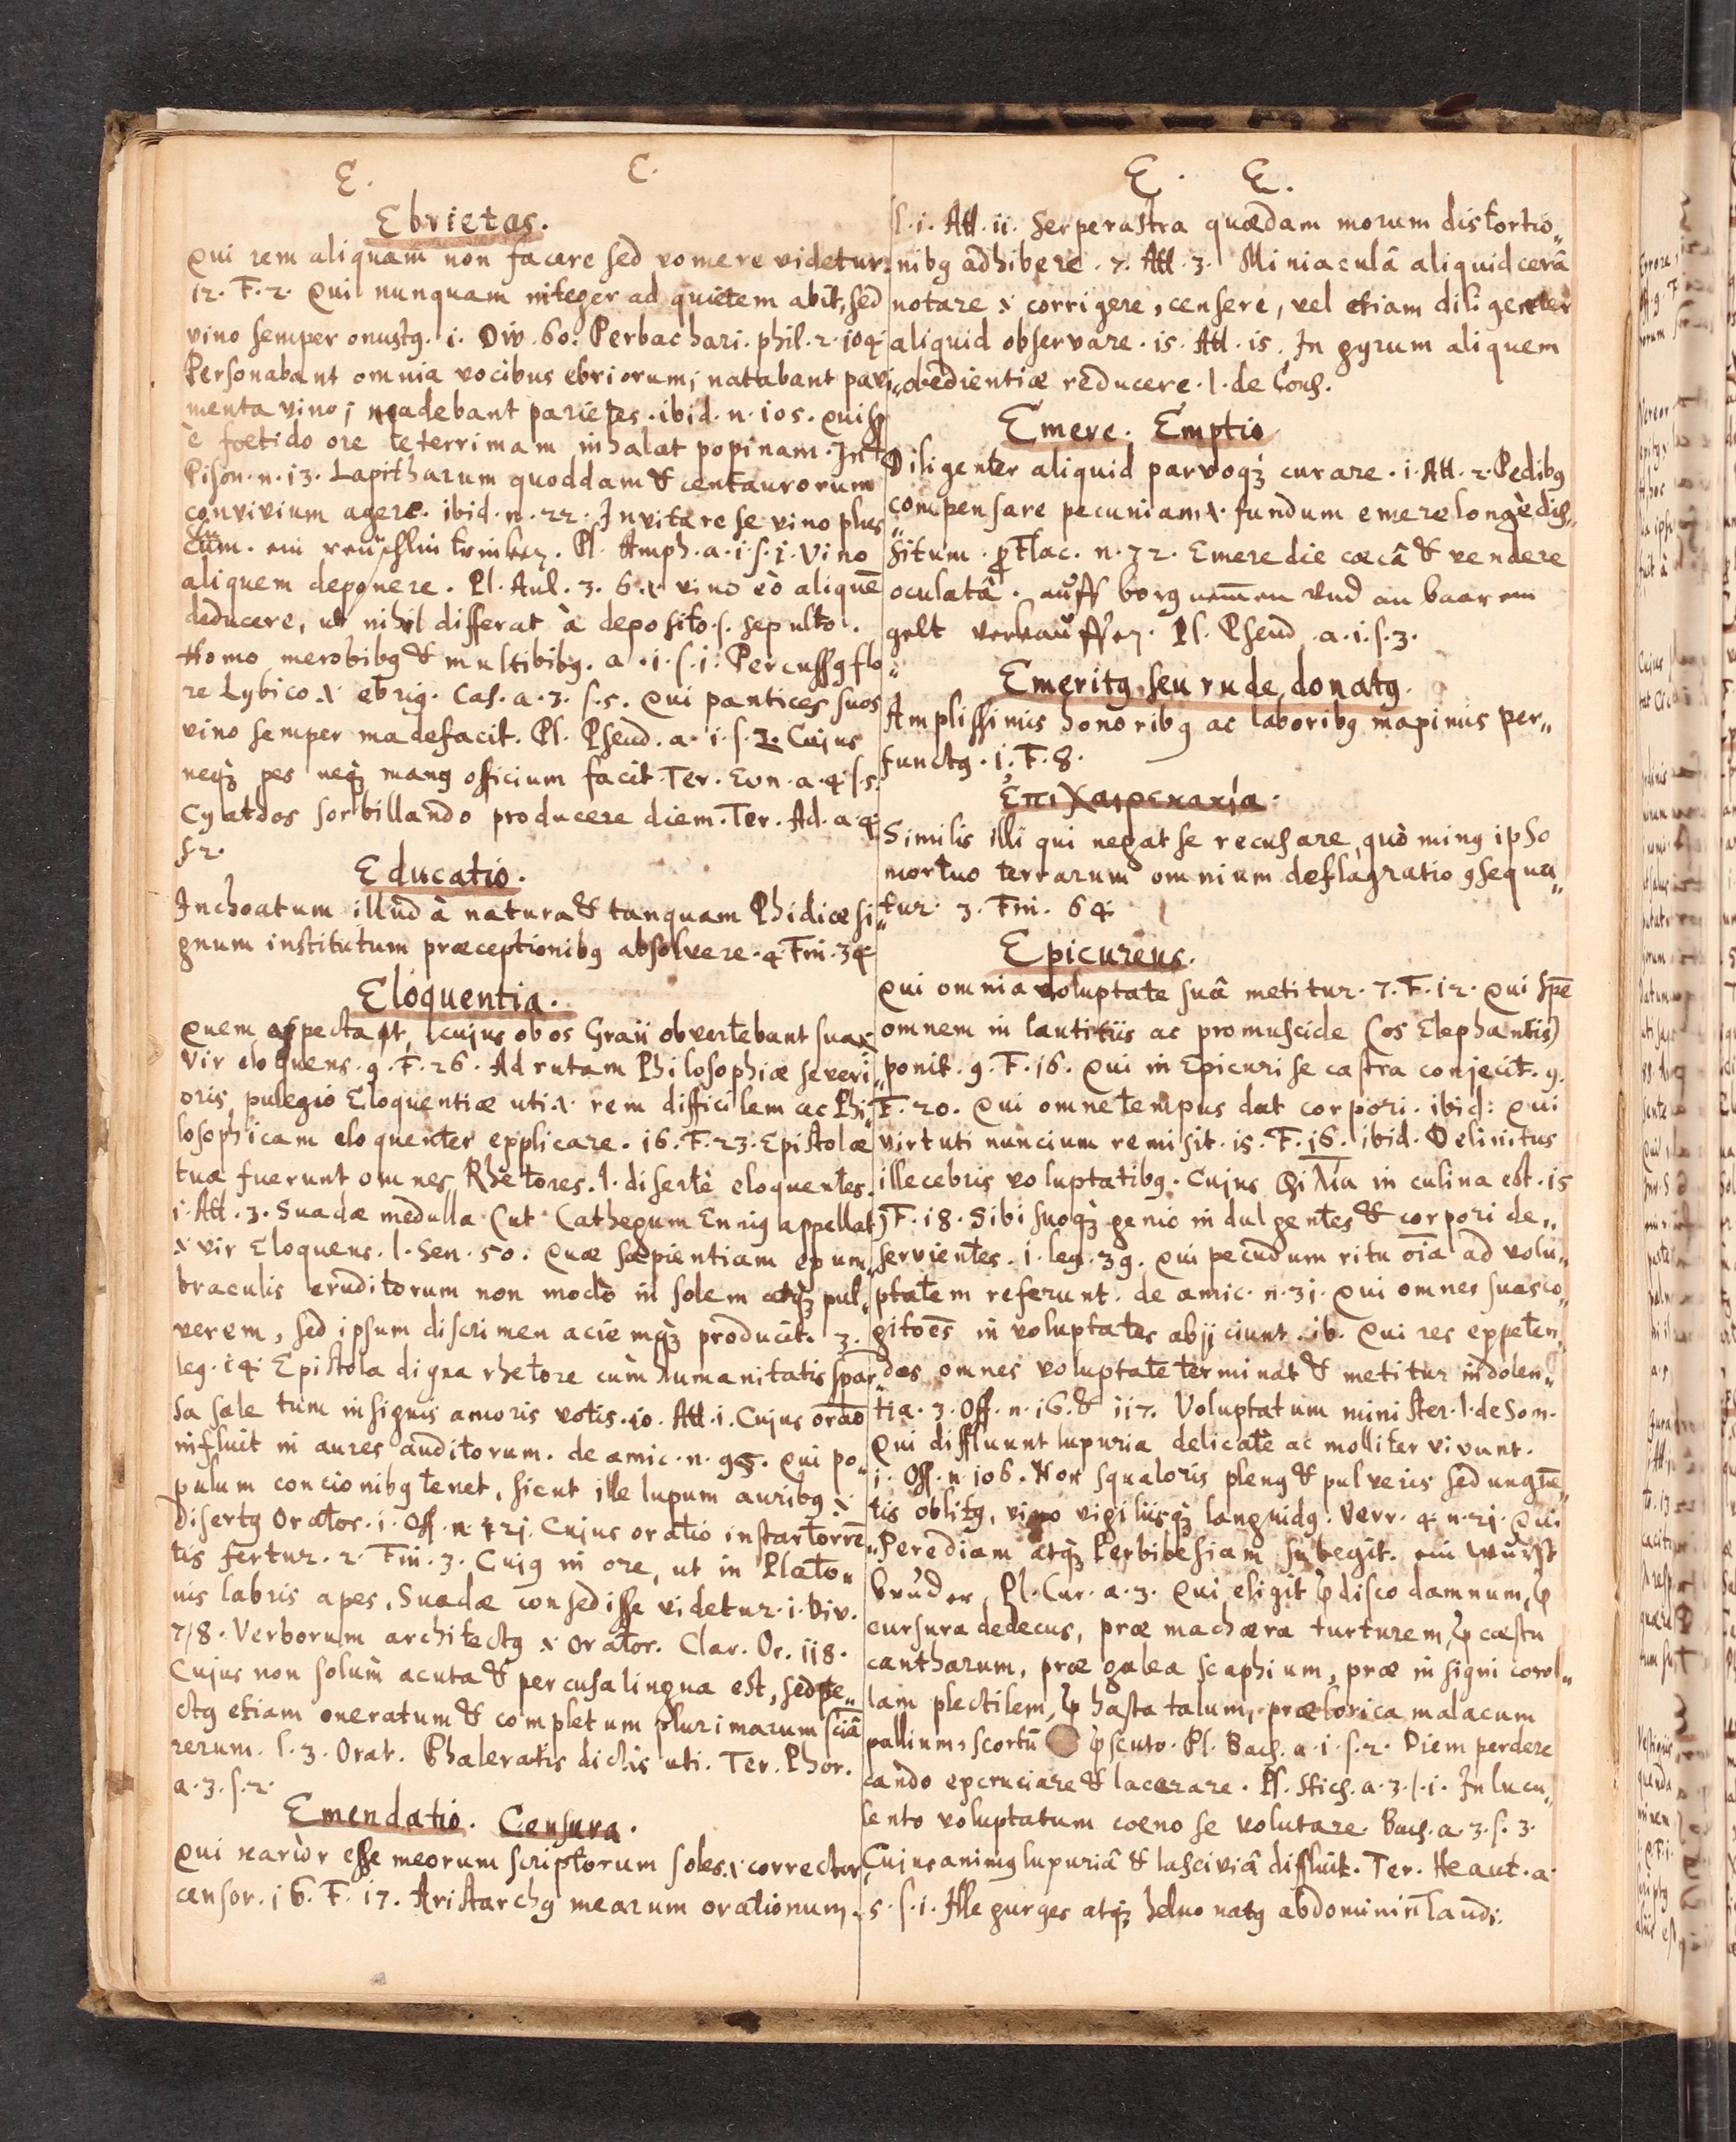 E. E.
Ebrietas.
Qui rem aliquam non facere sed vomere videtur.
12. F. 2. Qui nunquam integer ad quietem abit, sed
vino semper onustꝰ. 1. Div. 60. Perbachari. phil. 2. 104.
Personabant omnia vocibus ebriorum, natabant pavi„
menta vino, madebant parietes. ibid. n. 105. Quisq
è foetido ore teterrimam inhalat popinam. In
Pison. n. 13. Lapitharum quoddam & centaurorum
convivium agere. ibid. n. 22. Invitare se vino plus
cùm. ein reuschlin trinken. Pl. Amph. a. 1. s. 1. Vino
aliquem deponere. Pl. Aul. 3. 6. x vino eò aliquē
deducere, ut nihil differat à deposito. s. sepulto.
Homo merobibꝰ & multibibꝰ. a. 1. s. 1. Percussꝰ flo
re Lybico x ebriꝰ. Cas. a. 3. s. 5. Qui pantices suos
vino semper madefacit. Pl. Pseud. a. 1. s. 2. Cujus
neqꝫ pes neqꝫ manꝰ officium facit. Ter. Eun. a. 4. s. 5.
Cyatdos sorbillando producere diem. Ter. Ad. a. 4.
s. 2.
Educatio.
Inchoatum illud à natura & tanquam Phidiæ si„
gnum institutum præceptionibꝰ absolvere. 4. Fin. 34
Eloquentia.
Quem aspectant, cujus ob os Graii obvertebant sua x
Vir eloquens. 9. F. 26. Ad rutam Philosophiæ severi„
oris pulegio Eloquentiæ uti. x. rem difficilem ac Phi„
losophicam eloquenter explicare. 16. F. 23. Epistolæ
tuæ fuerunt omnes Rhetores. 1. disertè eloquentes.
1. Att. 3. Suadæ medulla (ut Cathegum Enniꝰ appellat)
x vir Eloquens. l. Sen. 50. Quæ sapientiam ex um„
braculis eruditorum non modò in solem atqꝫ pul„
verem, sed ipsum discrimen aciemqꝫ producit. 3.
leg. 14. Epistola digna rhetore cùm humanitatis spar„
sa sale tum insignis amoris votis. 10. Att. 1. Cujus orāō
influit in aures auditorum. de amic. n. 95. Qui po„
pulum concionibꝰ tenet, sicut ille lupum auribꝰ x
Disertꝰ Orator. 1. Off. n. 121. Cujus oratio instar torrē„
tis fertur. 2. Fin. 3. Cujꝰ in ore, ut in Plato„
nis labris apes, Suadæ consedisse videtur. 1. Div.
78. Verborum architectꝰ x orator. Clar. Or. 118.
Cujus non solum acuta & percusa lingua est, sed pe„
ctꝰ etiam oneratum & completum plurimarum sciā
rerum. l. 3. Orat. Phaleratis dictis uti. Ter. Phor.
a. 3. s. 2.
Emendatio. Censura.
Qui κανὼν esse meorum scriptorum soles. x. corrector,
censor. 16. F. 17. Aristarchꝰ mearum orationum.
E. E.
l. 1. Att. 11. Serperastra quædam morum distortio„
nibꝰ adhibere. 7. Att. 3. Miniaculâ aliquid cerâ
notare x corrigere, censere, vel etiam diligenter
aliquid observare. 15. Att. 15. In gyrum aliquem
obedientiæ reducere. l. de Cons.
Emere. Emptio
Diligenter aliquid parvoqꝫ curare. 1. Att. 2. Pedibꝰ
compensare pecuniam x. fundum emere longè dis„
situm. ꝓ Flac. n. 72. Emere die cæcâ & vendere
oculatâ. auff borg nemmen und an baarem
gelt verkauffen. Pl. Pseud. a. 1. s. 3.
Emeritꝰ seu rude donatꝰ.
Amplissimis honoribꝰ ac laboribꝰ maximis per„
functꝰ. 1. F. 8.
Ἐπιχαιρεκακία.
Similis illi qui negat se recusare, quò minꝰ ipso
mortuo terrarum omnium deflagratio ꝯsequa„
tur. 3. Fin. 64.
Epicureus.
Qui omnia voluptate suâ metitur. 7. F. 12. Qui spē
omnem in lautitiis ac promuscide (os Elephantis)
ponit. 9. F. 16. Qui in Epicuri se castra conjecit. 9.
F. 20. Qui omne tempus dat corpori. ibid: Qui
virtuti nuncium remisit. 15. F. 16. ibid. Delinitus
illecebris voluptatibꝰ. Cujus in culina est. 15
F. 18. Sibi suoqꝫ genio indulgentes & corpori de„
servientes. 1. leg. 39. Qui pecudum ritu oīa ad volu„
ptatem referunt. de amic. n. 31. Qui omnes suas co„
gitoēs in voluptates abjiciunt. ib. Qui res expeten„
das omnes voluptate terminat & metitur indolen„
tia. 3. Off. n. 16. & 117. Voluptatum minister. l. de Son.
Qui diffluunt luxuria delicatè ac molliter vivunt.
1. Off. n. 106. Non squaloris plenꝰ & pulveris sed unguē„
tis oblitꝰ, vino vigiliisqꝫ languidꝰ. Verr. 4. n. 21. Qui
Perediam atqꝫ Perbibesiam subegit. ein wurst
bruder. Pl. Cur. a. 3. Qui eligit p disco damnum, p
cursura dedecus, præ machæra turturem, p cæstu
cantharum, præ galea scaphium, præ insigni corol„
lam plectilem, p hasta talum, præ lorica malacum
pallium, scortū p scuto. Pl. Bach. a. 1. s. 2. Diem perdere
cando excruciare & lacerare. Pl. Stich. a. 3. s. 1. In lucu„
lento voluptatum coeno se volutare. Bach. a. 3. s. 3.
Cujus animꝰ luxuriâ & lasciviâ diffluit. Ter. Heaut. a.
5. s. 1. Ille gurges atqꝫ heluo natꝰ abdomini ñ laudi.